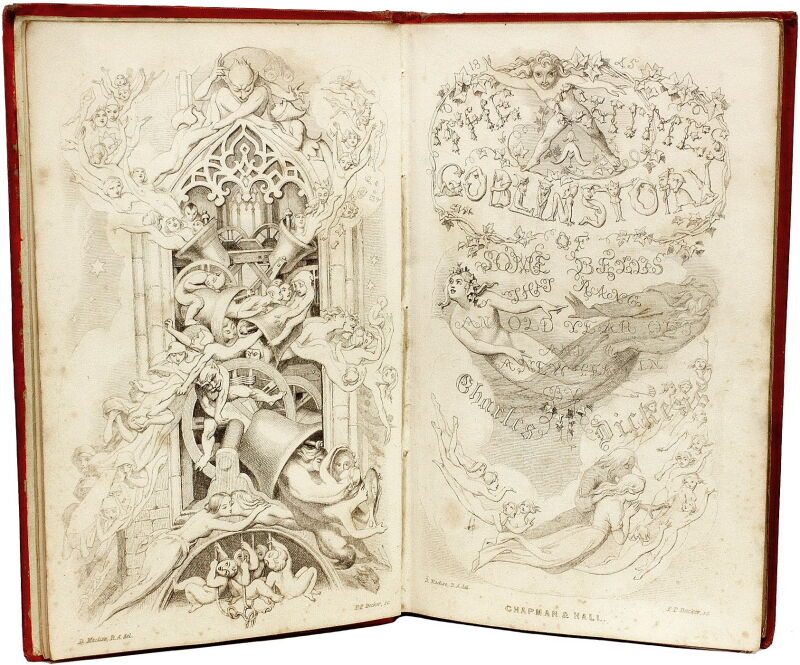 D. Maclise, R.A. del.
F.P. Becker, sc.
18 45
THE CHIMES
GOBLIN STORY
OF
SOME BELLS
THAT RANG
AN OLD YEAR OUT
AND
A NEW YEAR IN
BY
Charles Dickens
D. Maclise, R.A. del.
F.P. Becker, sc.
CHAPMAN & HALL.